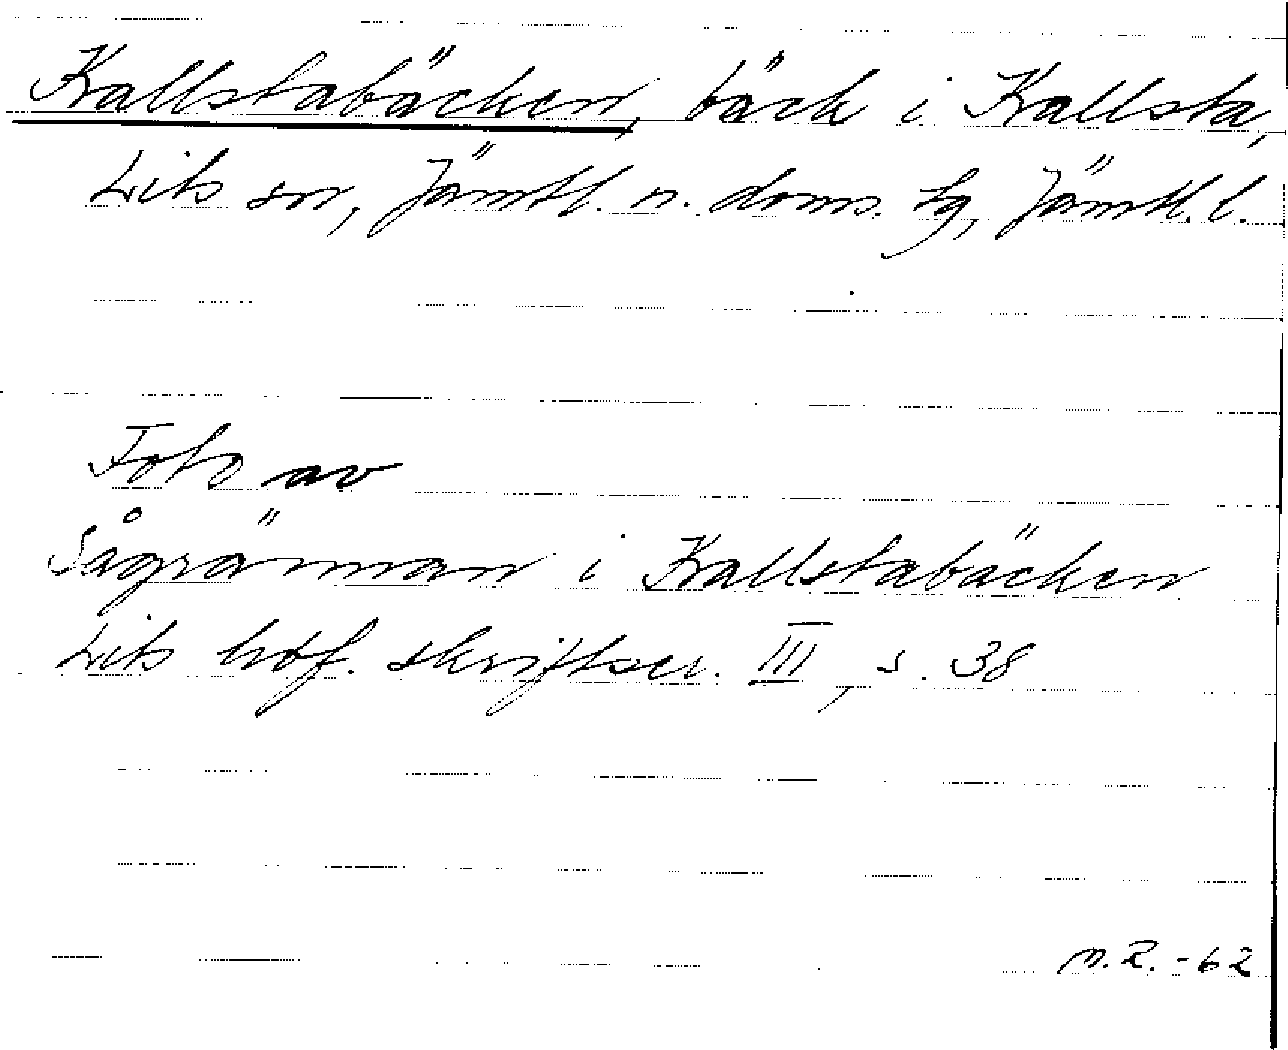 Kallstabäcken, bäck i Kallsta,
Lits sn, Jämtl. n. doms. tg, Jämtl. l.
Foto av
Sågrännan i Kallstabäcken
Lits hbf. skriftser. III, s. 38
N.R. -62